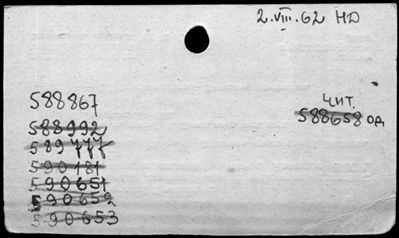 2.VIII.62 НД
588867
чит.
588658 од
588992
589777
590181
590651
590652
590653